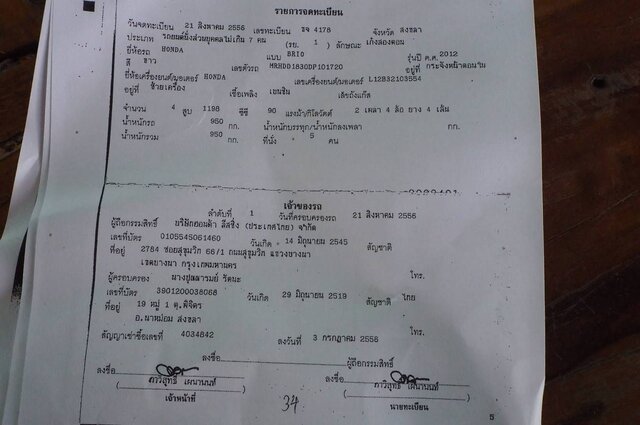 รายการจดทะเบียน
วันจดทะเบียน 21 สิงหาคม 2556 เลขทะเบียน ขจ 4178 จังหวัด สงขลา
ประเภท รถยนต์นั่งส่วนบุคคลไม่เกิน 7 คน (รย. 1) ลักษณะ เก๋งสองตอน
ยี่ห้อรถ HONDA แบบ BRIO รุ่นปี ค.ศ. 2012
สี ขาว เลขตัวรถ MRHDD1830DP101720 อยู่ที่
ยี่ห้อเครื่องยนต์/มอเตอร์ HONDA เลขเครื่องยนต์/มอเตอร์ L12B32103554
อยู่ที่ ซ้ายเครื่อง เชื้อเพลิง เบนซิน เลขถังแก๊ส
จำนวน 4 สูบ 1198 ซีซี 90 แรงม้า/กิโลวัตต์ 2 เพลา 4 ล้อ ยาง 4 เส้น
น้ำหนักรถ 950 กก. น้ำหนักบรรทุก/น้ำหนักลงเพลา กก.
น้ำหนักรวม 950 กก. ที่นั่ง 5 คน
เจ้าของรถ
ลำดับที่ 1 วันที่ครอบครองรถ 21 สิงหาคม 2556
ผู้ถือกรรมสิทธิ์ บริษัทฮอนด้า ลีสซิ่ง (ประเทศไทย) จำกัด
เลขที่บัตร 0105545061460 วันเกิด 14 มิถุนายน 2545 สัญชาติ
ที่อยู่ 2784 ซอยสุขุมวิท 66/1 ถนนสุขุมวิท แขวงบางนา
เขตบางนา กรุงเทพมหานคร โทร.
ผู้ครอบครอง
เลขที่บัตร 3901200038068 วันเกิด 29 มิถุนายน 2519 สัญชาติ ไทย
ที่อยู่ 19 หมู่ 1 ต.พิจิตร
อ.นาหม่อม สงขลา โทร.
สัญญาเช่าซื้อเลขที่ 4034842 ลงวันที่ 3 กรกฎาคม 2556
ลงชื่อ ผู้ถือกรรมสิทธิ์
ลงชื่อ ลงชื่อ
เจ้าหน้าที่ นายทะเบียน
34
5